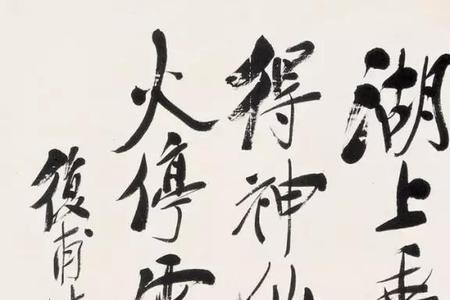 湖上
得神仙
火停
復甫